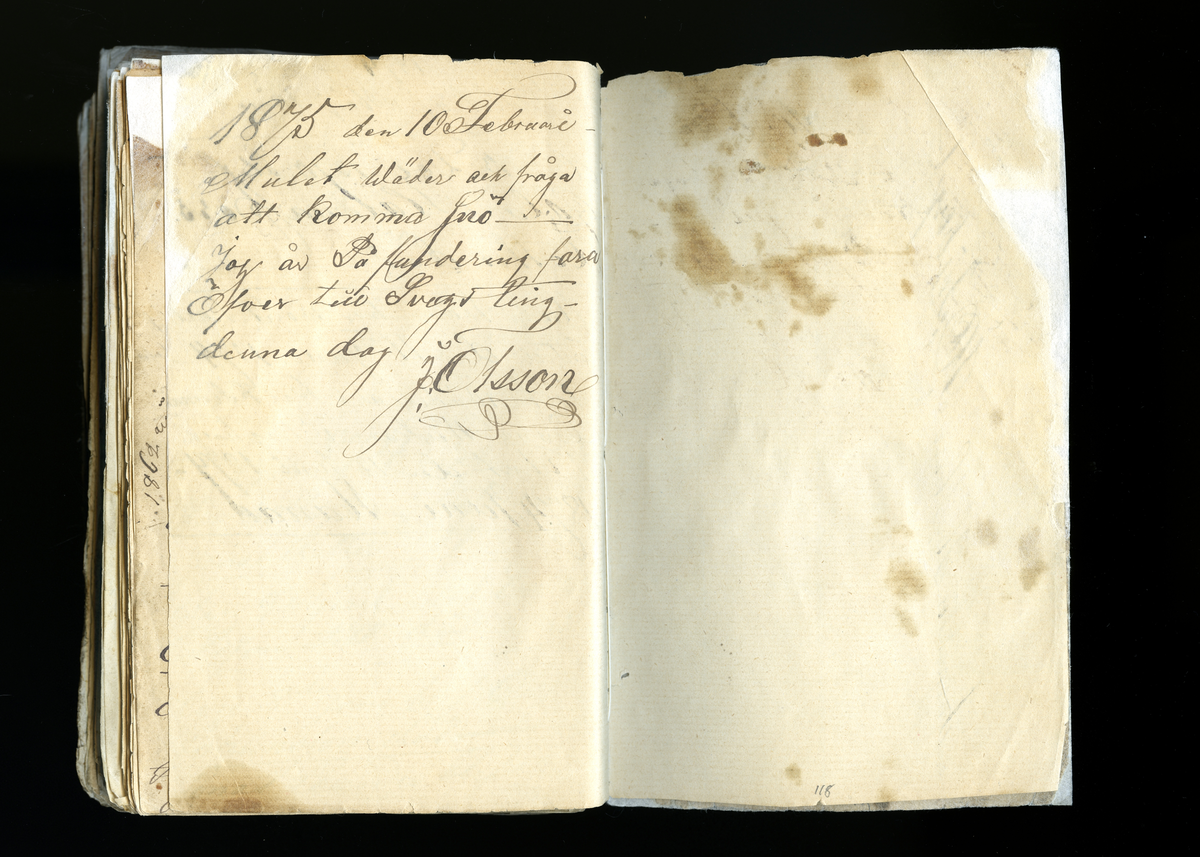 1875 den 10 Februari -
Mulet Wäder ock fråga
att komma Snö —
Jag är På fundering fara
Öfver till Svegs ting -
denna dag
J. Olsson
1862
118